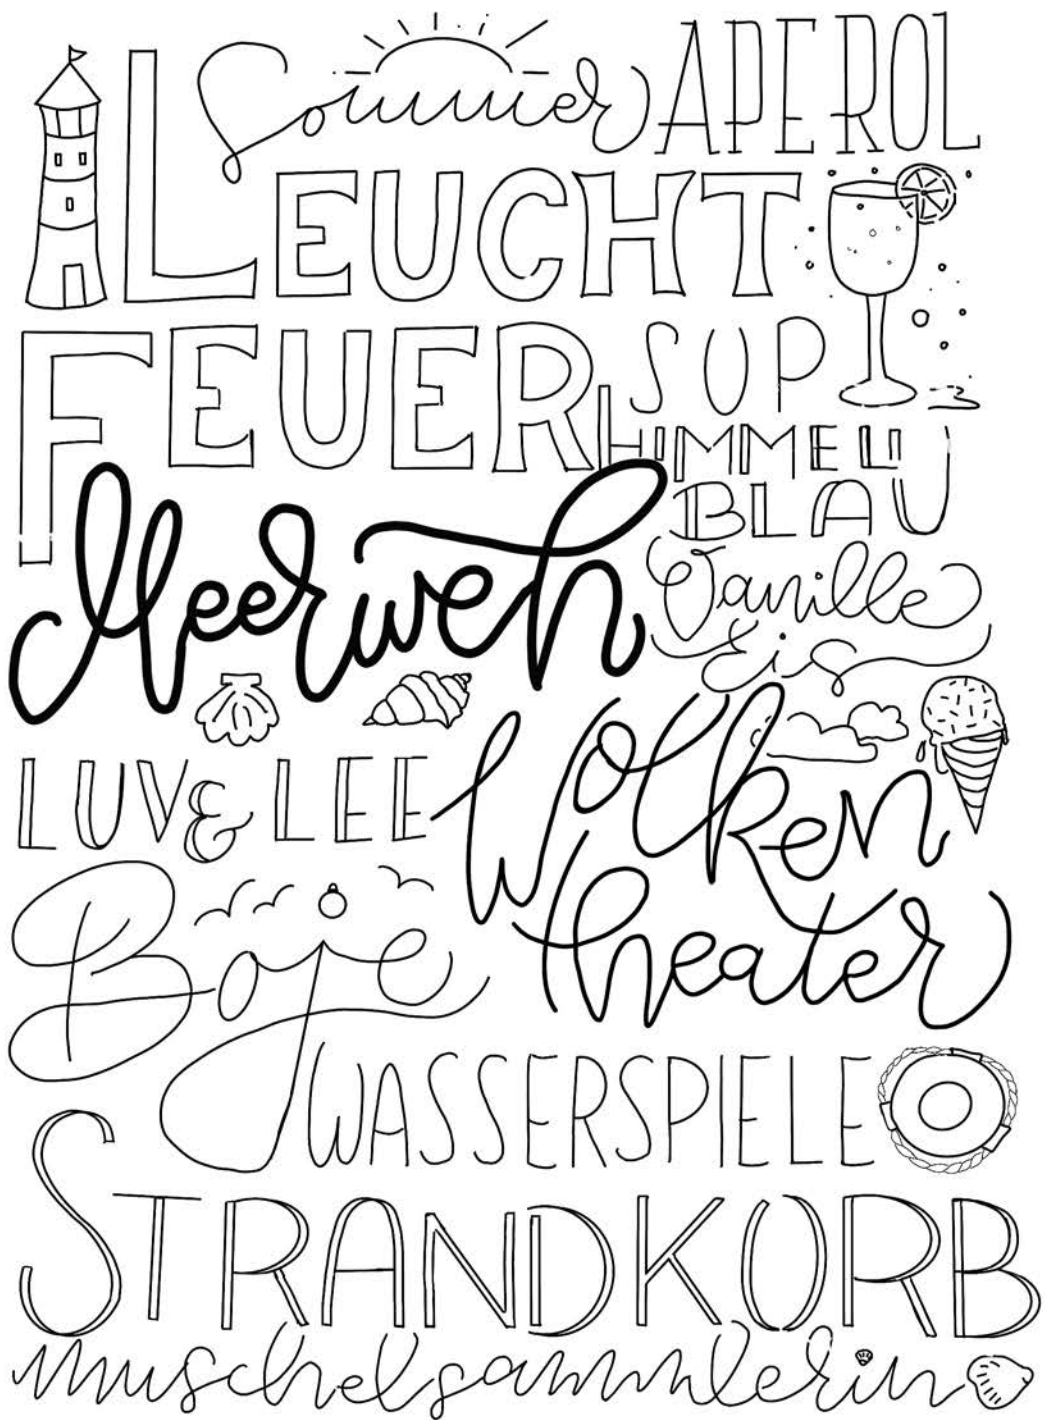 Sommer APEROL
LEUCHT
FEUER
SUP
HIMMEL
BLAU
Meerweh
Vanille
Eis
LUV & LEE
Wolken
theater
Boje
WASSERSPIELE
STRANDKORB
Muschelsammlerin